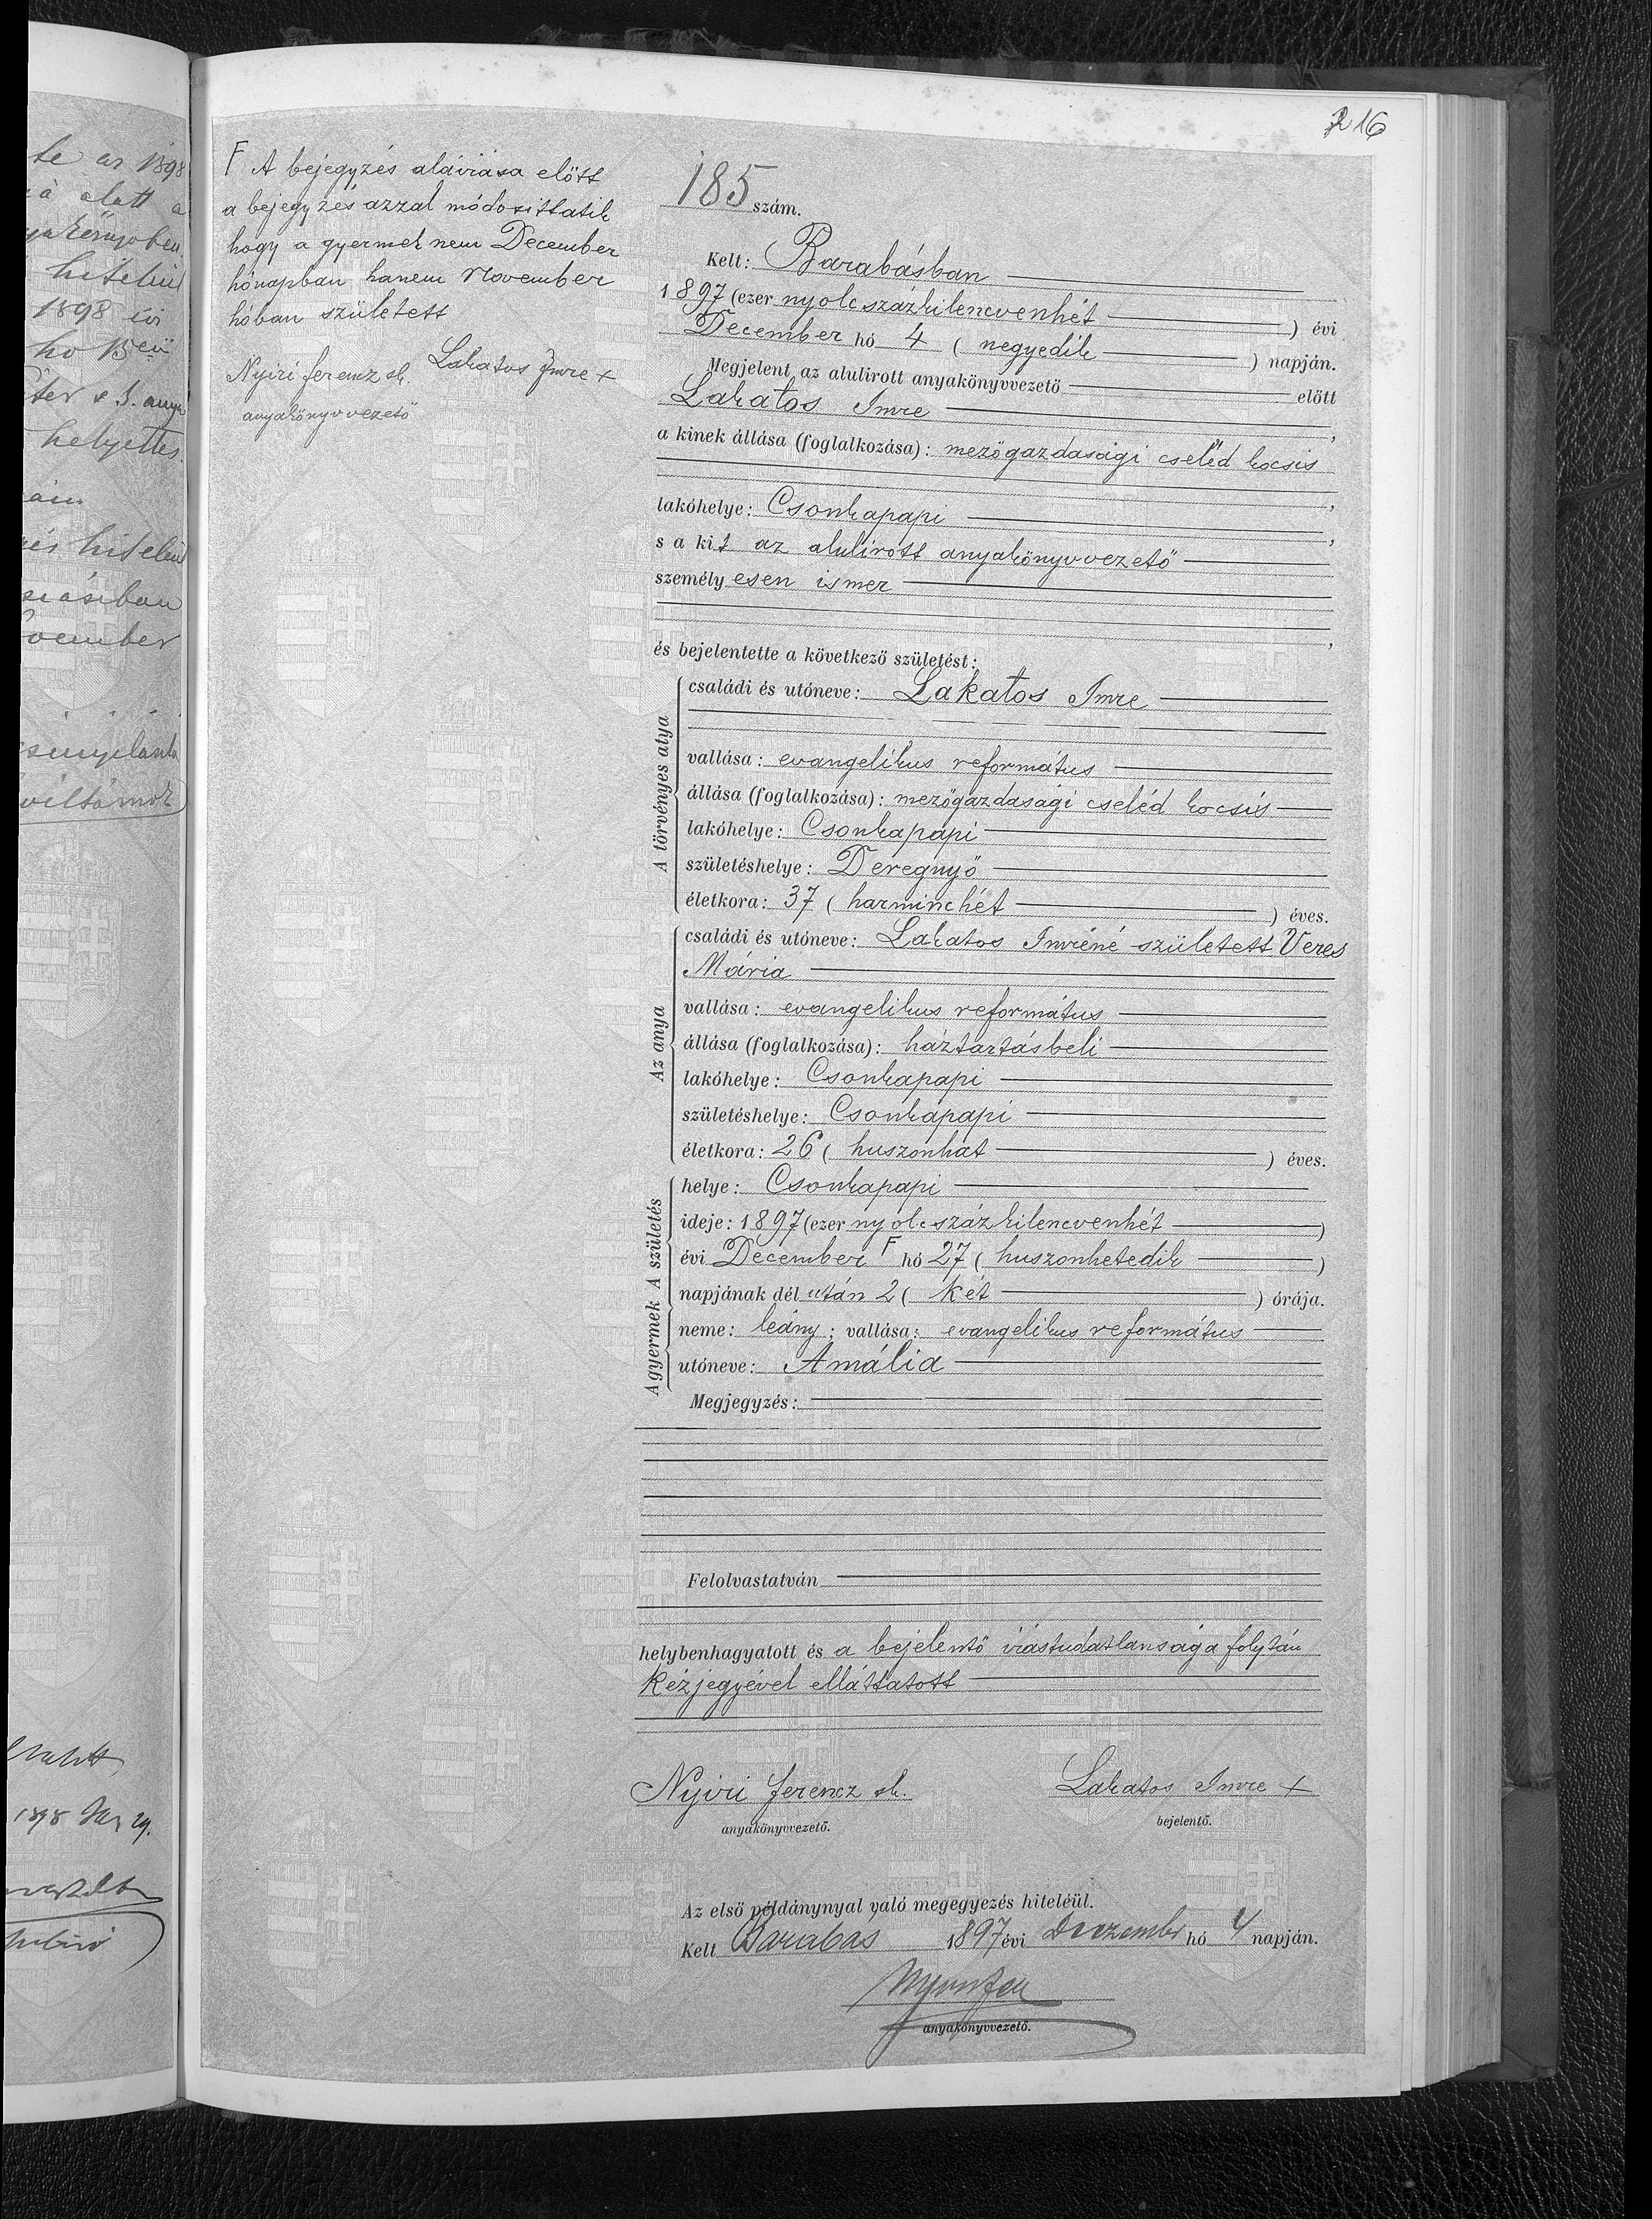 te az 1898
alatt a
hiteléül
1898 évi
helyettes.
és hiteléül
November
1898
216
F A bejegyzés aláirása előtt
a bejegyzés azzal módosittatik
hogy a gyermek nem December
hónapban hanem November
hóban született
Nyiri ferencz sk. Lakatos Imre +
anyakönyvvezető
185 szám.
Kelt: Barabásban
1897 (ezer nyolcszázkilencvenhét ) évi
December hó 4 ( negyedik ) napján.
Megjelent az alulirott anyakönyvvezető előtt
Lakatos Imre ,
a kinek állása (foglalkozása): mezőgazdasági cseléd kocsis
,
lakóhelye: Csonkapapi ,
s a kit az alulirott anyakönyvvezető
személyesen ismer
,
és bejelentette a következő születést:
A törvényes atya
családi és utóneve: Lakatos Imre
vallása: evangelikus református
állása (foglalkozása): mezőgazdasági cseléd kocsis
lakóhelye: Csonkapapi
születéshelye: Deregnyő
életkora: 37 ( harminchét ) éves.
Az anya
családi és utóneve: Lakatos Imréné született Veres
Mária
vallása: evangelikus református
állása (foglalkozása): háztartásbeli
lakóhelye: Csonkapapi
születéshelye: Csonkapapi
életkora: 26 ( huszonhat ) éves.
A születés
helye: Csonkapapi
ideje: 1897 (ezer nyolcszázkilencvenhét )
évi December F hó 27 ( huszonhetedik )
napjának dél után 2 ( két ) órája.
A gyermek
neme: leány; vallása: evangelikus református
utóneve: Amália
Megjegyzés:
Felolvastatván
helybenhagyatott és a bejelentő irástudatlansága folytán
kézjegyével elláttatott
Nyiri ferencz sk. Lakatos Imre +
anyakönyvvezető. bejelentő.
Az első példánynyal való megegyezés hiteléül.
Kelt Barabás 1897 évi Deczember hó 4 napján.
anyakönyvvezető.